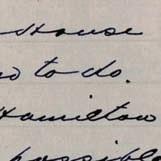 House
to do.
Hamilton
possible